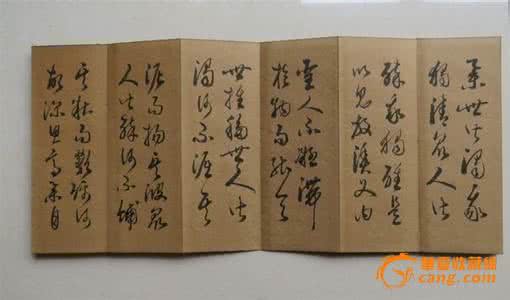 舉世皆濁我
獨清眾人皆
醉我獨醒是
以見放漁父曰
聖人不凝滯
於物而能與
世推移世人皆
濁何不淈其
泥而揚其波眾
人皆醉何不餔
其糟而歠醨何
故深思高舉自
華夏收藏網
cang.com